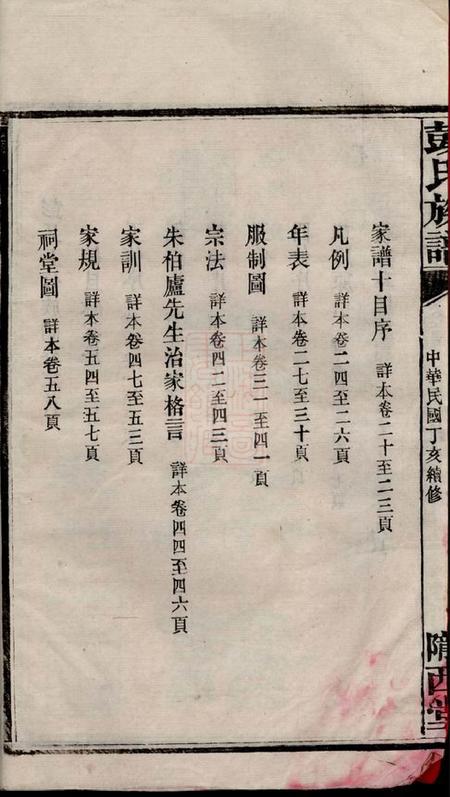 彭氏族譜
中華民國丁亥續修
隴西堂
家譜十目序 詳本卷二十至二三頁
凡例 詳本卷二四至二六頁
年表 詳本卷二七至三十頁
服制圖 詳本卷三一至四一頁
宗法 詳本卷四二至四三頁
朱柏廬先生治家格言 詳本卷四四至四六頁
家訓 詳本卷四七至五三頁
家規 詳本卷五四至五七頁
祠堂圖 詳本卷五八頁